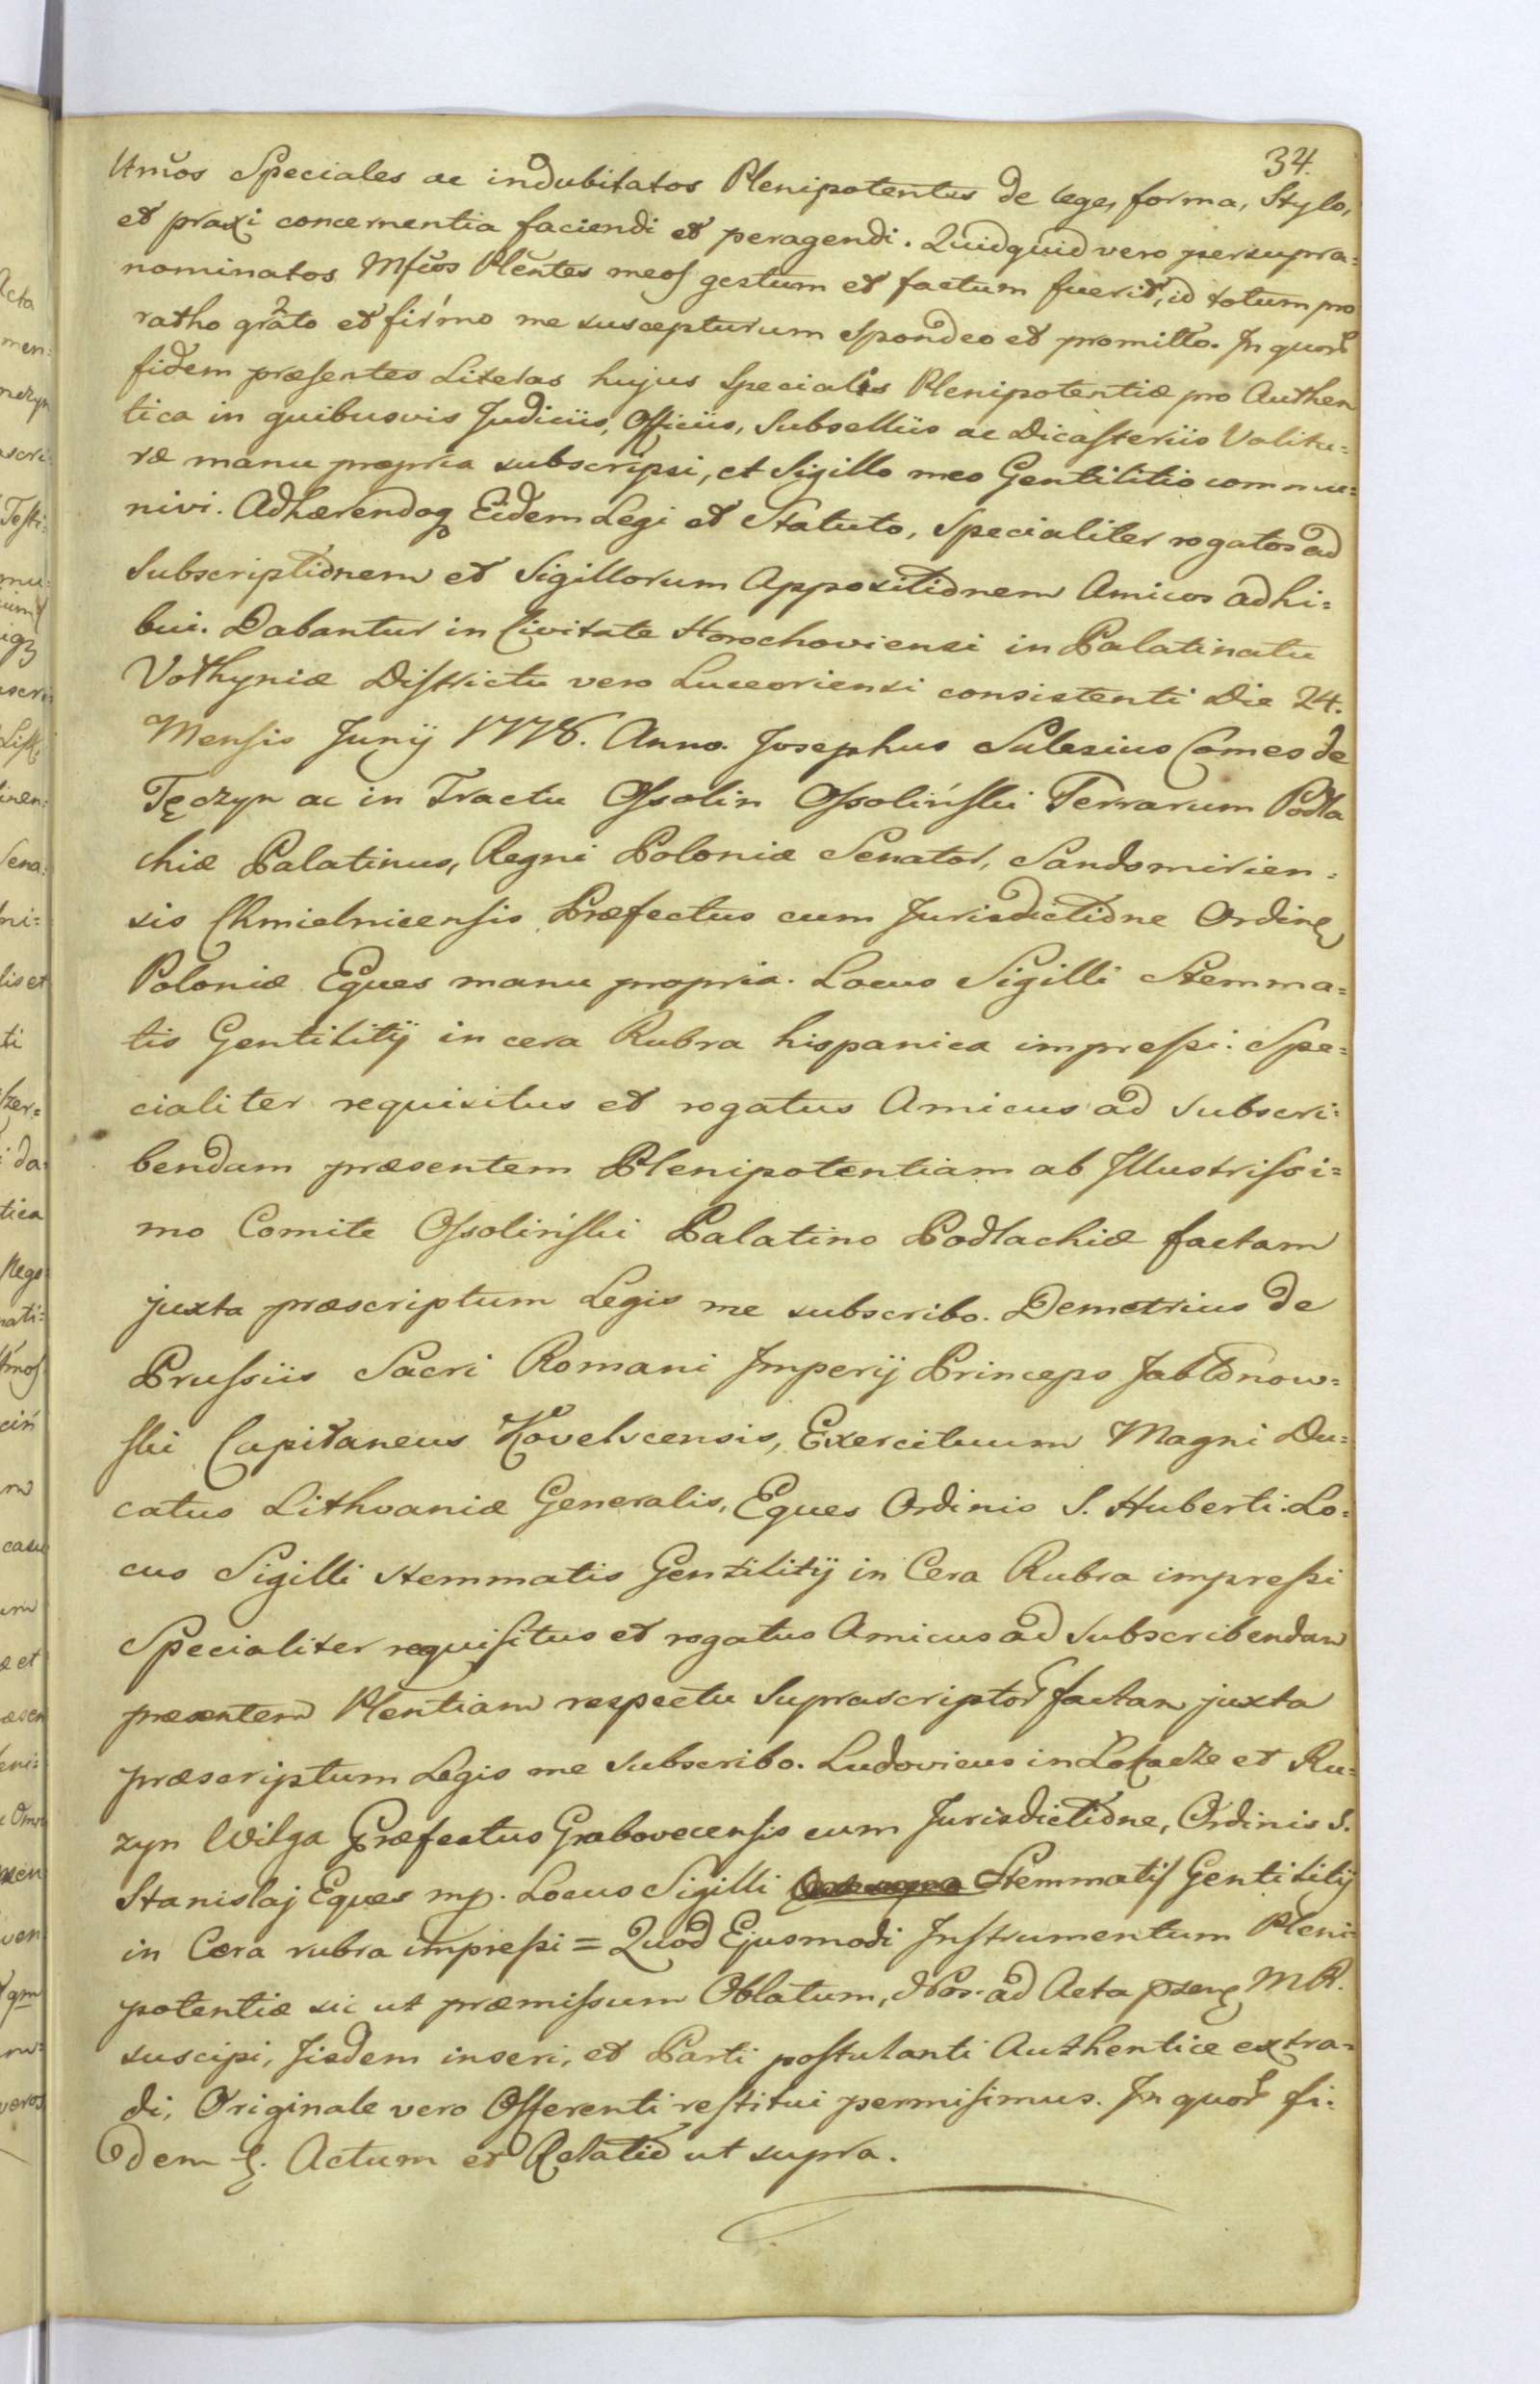 34.
Umos Speciales ac indubitatos Plenipotentes de lege, forma, Stylo,
et praxi concernentia faciendi et peragendi. Quidquid vero per supra=
nominatos Mfcos Plentes meos gestum et factum fuerit, id totum pro
ratho grato et firmo me suscepturum spondeo et promitto. In quor
fidem præsentes Literas hujus Specialis Plenipotentiæ pro Authen
tica in quibusvis Judiciis, Officiis, Subselliis ac Dicasteriis Valitu=
ræ manu propria subscripsi, et Sigillo meo Gentilitio commu=
nivi. Adhærendoq Eidem Legi et Statuto, Specialiter rogatos ad
Subscriptionem et Sigillorum Appositionem Amicos adhi=
bui. Dabantur in Civitate Horochoviensi in Palatinatu
Volhyniæ Districtu vero Luceoriensi consistenti Die 24.
Mensis Junij 1778. Anno. Josephus Salesius Comes de
Tęczyn ac in Tractu Ossolin Ossoliński Terrarum Podla
chiæ Palatinus, Regni Poloniæ Senator, Sandomirien=
sis Chmielnicensis Præfectus cum Jurisdictione Ordinę
Poloniæ Eques manu propria. Locus Sigilli Stemma=
tis Gentilitij in cera Rubra hispanica impressi: Spe=
cialiter requisitus et rogatus Amicus ad subscri=
bendam præsentem Plenipotentiam ab Illustrissi=
mo Comite Ossoliński Palatino Podlachiæ factam
juxta præscriptum Legis me subscribo. Demetrius de
Prussiis Sacri Romani Imperij Princeps Jabłonow=
ski Capitaneus Kovelscensis, Exercituum Magni Du=
catus Lithvaniæ Generalis, Eques Ordinis S. Huberti. Lo=
cus Sigilli stemmatis Gentilitij in Cera Rubra impressi
Specialiter requisitus et rogatus Amicus ad subscribendam
præsentem Plentiam respectu Suprascriptor factam juxta
præscriptum Legis me subscribo. Ludovicus in Łokacze et Ru=
zyn Wilga Præfectus Grabovecensis cum Jurisdictione, Ordinis S.
Stanislaj Eques mp. Locus Sigilli Stemmatis Gentilitij
in Cera rubra impressi = Quod Ejusmodi Instrumentum Pleni
potentiæ sic ut præmissum Oblatum, Nos ad Acta pzens M R.
suscipi, Iisdem inseri, et Parti postulanti Authentice extra=
di, Originale vero Offerenti restitui permisimus. In quor fi=
dem &. Actum et Relatio ut supra.